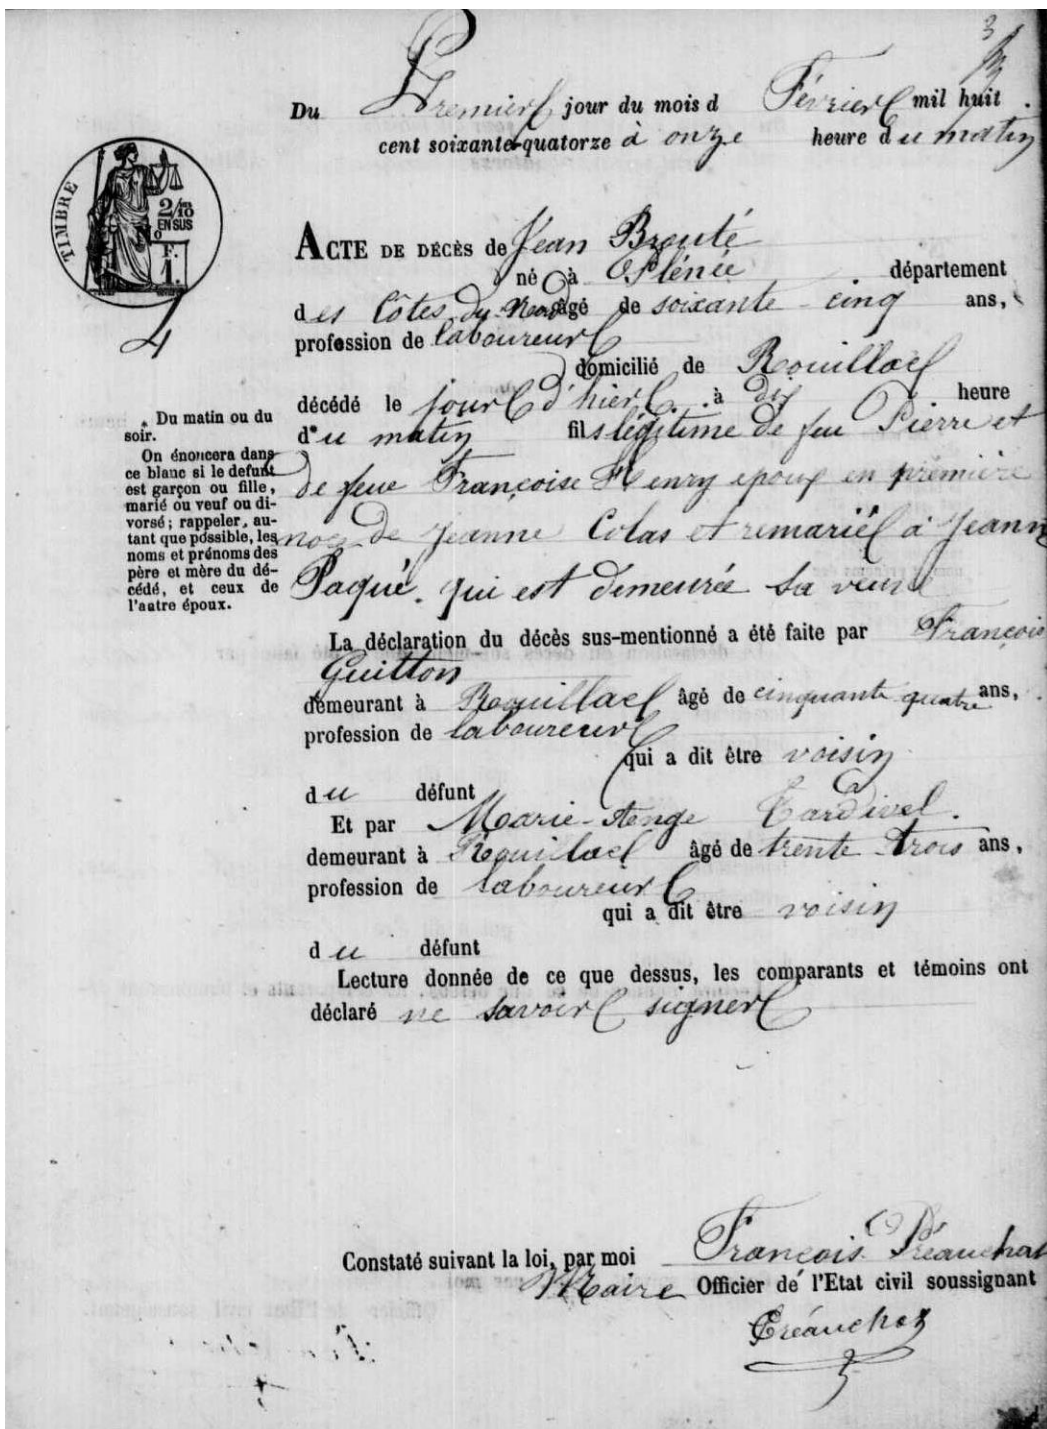 3
Du Premier jour du mois d Février mil huit
cent soixante-quatorze à onze heure du matin
TIMBRE
2/10
EN SUS
F.
1.
4
ACTE DE DÉCÈS de Jean Brouté
né à Plénée département
des Côtes du Nord âgé de soixante cinq ans,
profession de laboureur
domicilié de Rouillac
décédé le jour d'hier à dix heure
du matin fils légitime de feu Pierre et
de feue Françoise Henry epoux en première
noce de Jeanne Colas et remarié à Jeann
Paqué. qui est demeurée sa veuve
* Du matin ou du
soir.
On énoncera dans
ce blanc si le defunt
est garçon ou fille,
marié ou veuf ou di-
vorsé ; rappeler, au-
tant que possible, les
noms et prénoms des
père et mère du dé-
cédé, et ceux de
l'autre époux.
La déclaration du décès sus-mentionné a été faite par François
Guitton
demeurant à Rouillac âgé de cinquante quatre ans,
profession de laboureur
qui a dit être voisin
du défunt
Et par Marie-Ange Tardivel.
demeurant à Rouillac âgé de trente-trois ans,
profession de laboureur
qui a dit être voisin
du défunt
Lecture donnée de ce que dessus, les comparants et témoins ont
déclaré ne savoir signer
Constaté suivant la loi, par moi François Préauchat
Maire Officier de l'Etat civil soussignant
Préauchat